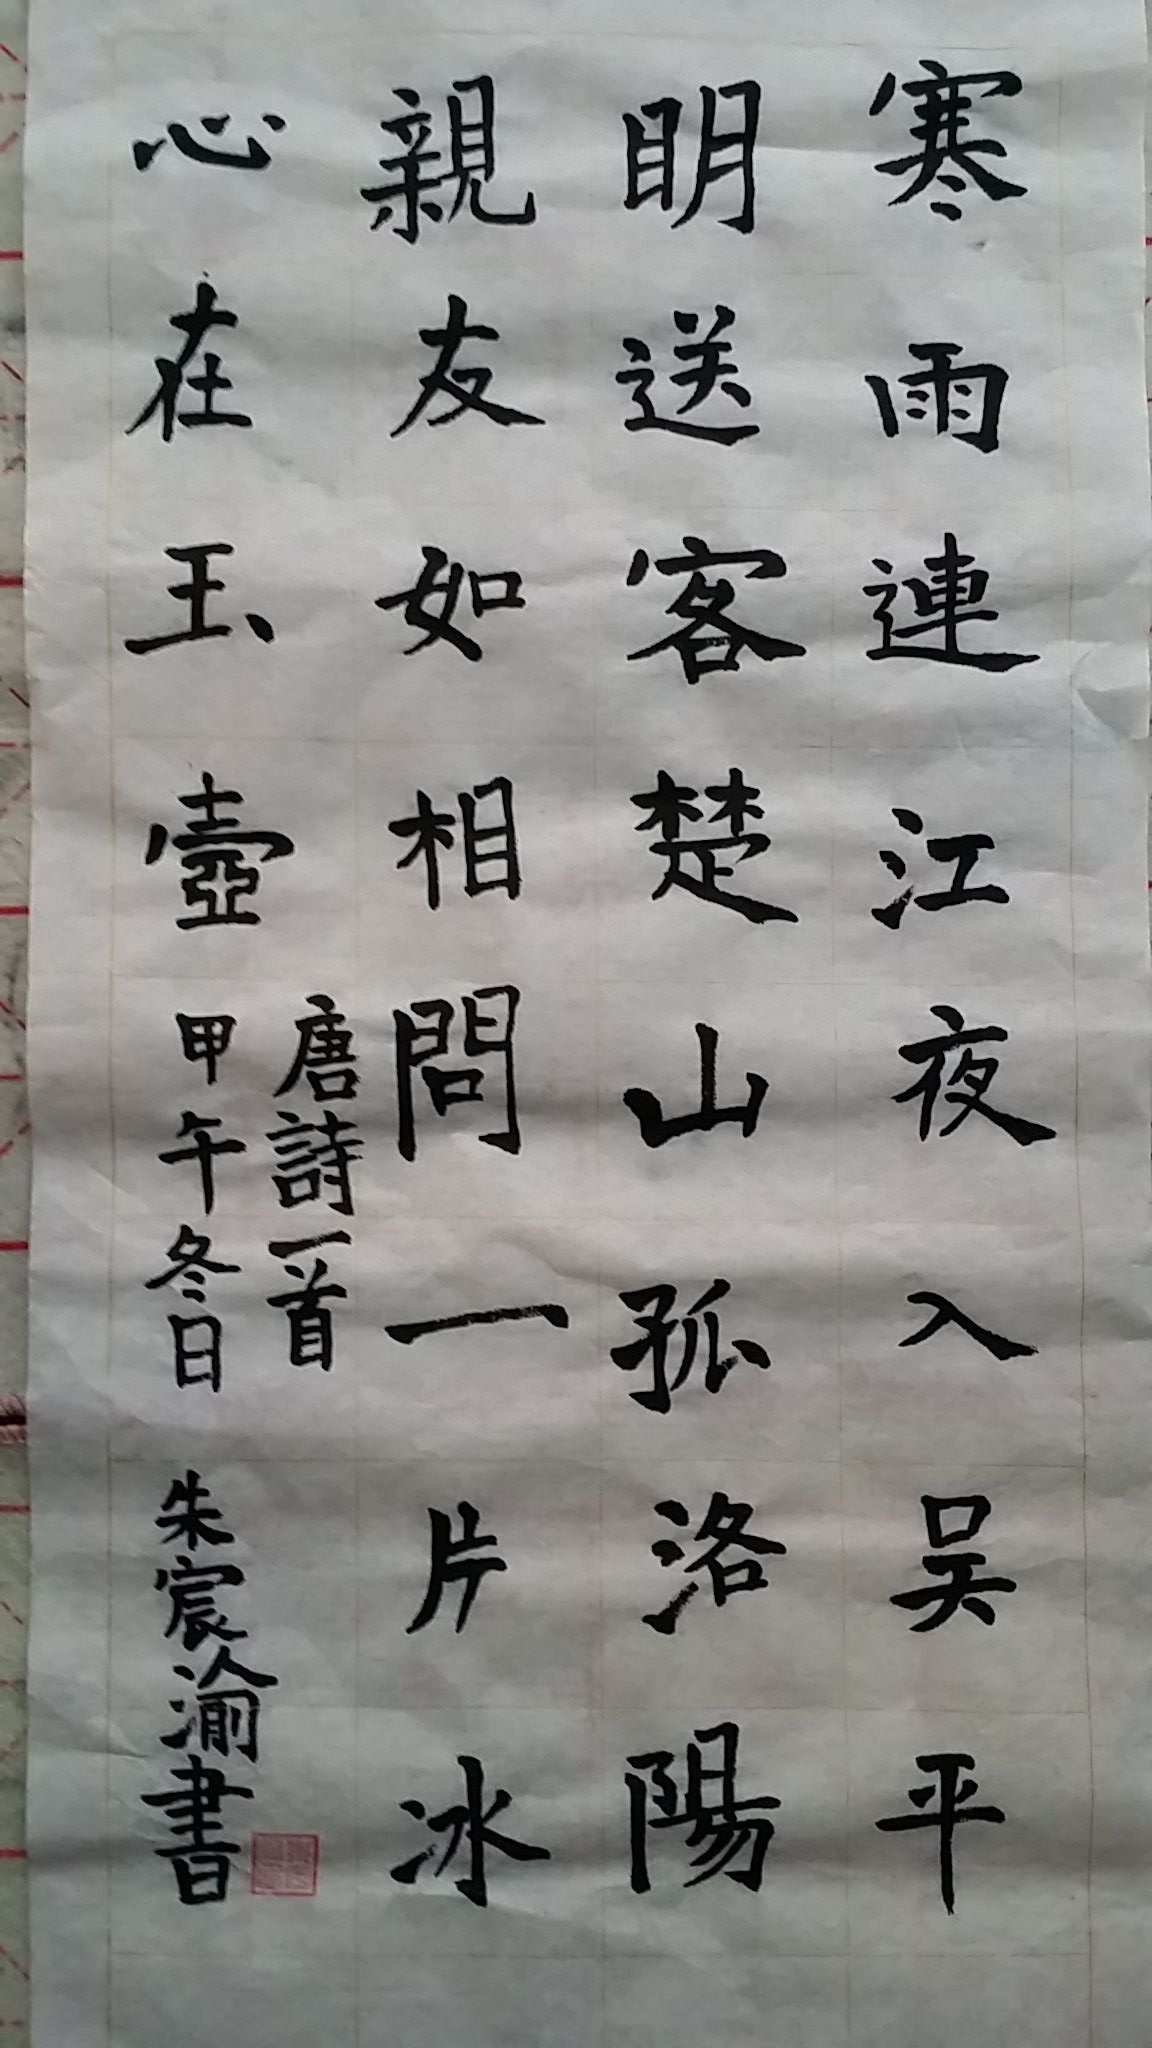 寒雨連江夜入吴平
明送客楚山孤洛陽
親友如相問一片冰
心在玉壺
唐詩一首
甲午冬日
朱宸渝書